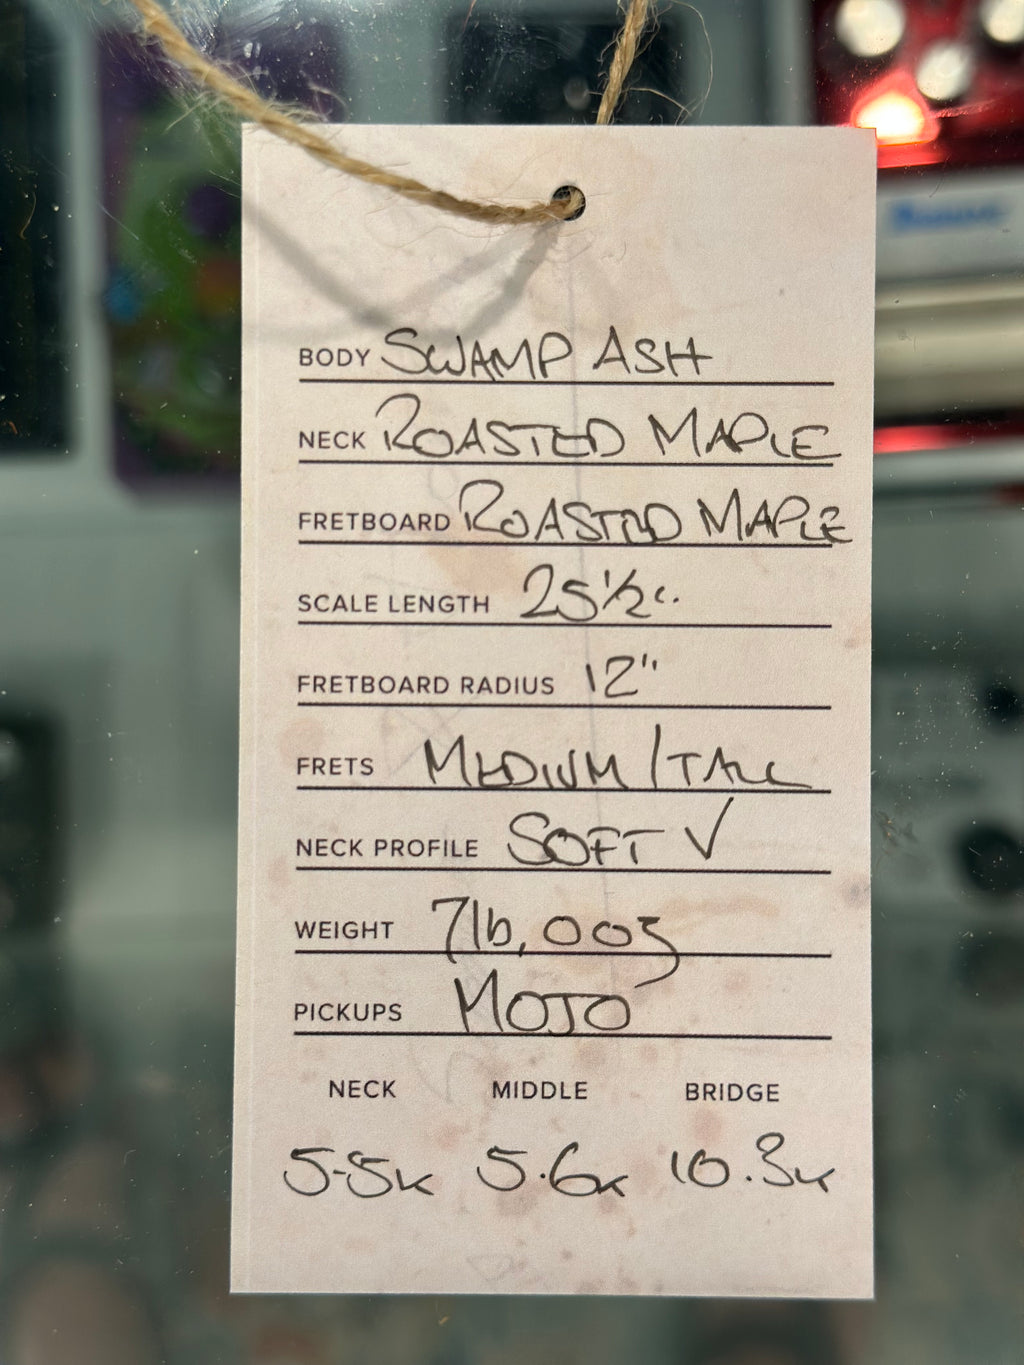 BODY SWAMP ASH
NECK ROASTED MAPLE
FRETBOARD ROASTED MAPLE
SCALE LENGTH 25 1/2".
FRETBOARD RADIUS 12"
FRETS MEDIUM/TALL
NECK PROFILE SOFT V
WEIGHT 7lb, 00z
PICKUPS MOJO
NECK MIDDLE BRIDGE
5.5K 5.6K 10.3K